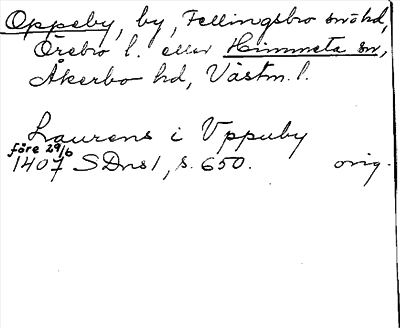 Oppeby, by, Fellingsbro sn o hd,
Örebro l. eller Himmeta sn,
Åkerbo hd, Västm. l.
Laurens i Vppuby
före 29/6
1407 SDns 1, s. 650. orig.